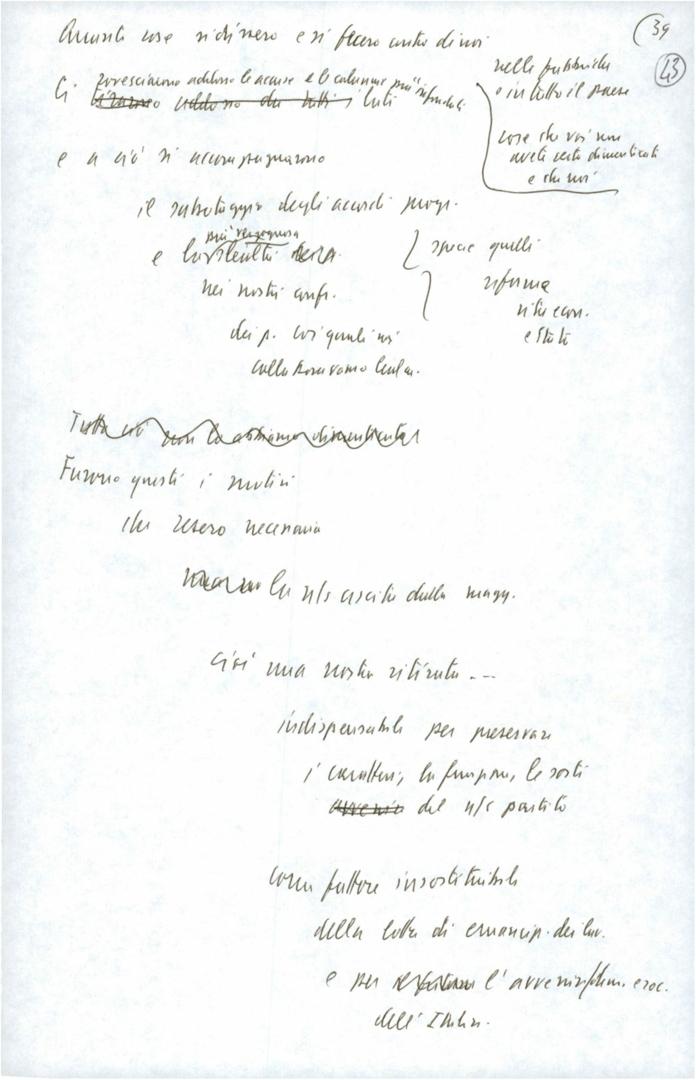 39
43
Quante cose si dissero e si fecero contro di noi
nelle fabbriche
e in tutto il paese
cose che voi non
avete certo dimenticato
e che noi
Ci rovesciarono addosso le accuse e le calunnie più
addosso da tutti i lati
e a ciò si accompagnarono
il sabotaggio degli accordi progr.
specie quelli
più vergognosa
e la slealtà
riforma
nei nostri confr.
vita econ.
dei p. coi quali noi
e Stato
collaboravamo lealm.
Tutto ciò non lo abbiamo dimenticato
Furono questi i motivi
che resero necessaria
la n/s uscita dalla magg.
cioè una nostra ritirata ...
indispensabile per preservare
i caratteri, la funzione, le sorti
avvenire del n/s partito
come fattore insostituibile
della lotta di emancip. dei lav.
e per l'avvenire
dell'Italia.